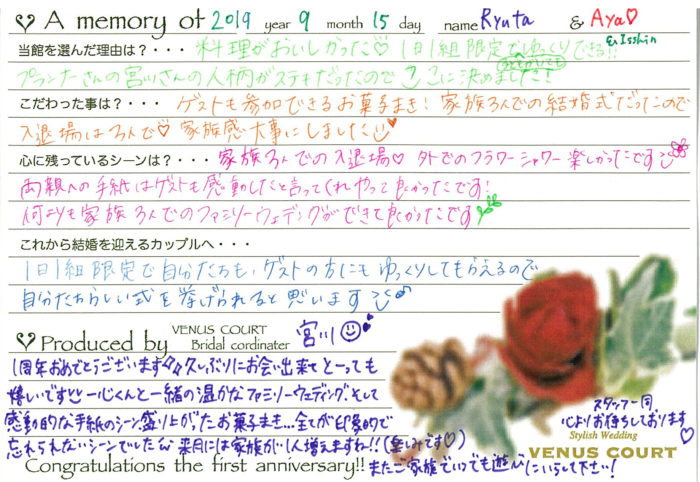 A memory of 2019 year 9 month 15 day name Ryuta & Aya♡
& Isshin
当館を選んだ理由は？・・・ 料理がおいしかった♡ 1日1組限定でゆっくりできる!!
プランナーさんの宮川さんの人柄がステキだったので ここに決めました!
こだわった事は？・・・ ゲストも参加できるお菓子まき! 家族3人での結婚式だったので
入退場は3人で♡ 家族感大事にしました
心に残っているシーンは？・・・ 家族3人での入退場♡ 外でのフラワーシャワー楽しかったです
両親への手紙はゲストも感動したと言ってくれやって良かったです!
何よりも家族3人でのファミリーウェディングができて良かったです
これから結婚を迎えるカップルへ・・・
1日1組限定で自分たちも、ゲストの方にもゆっくりしてもらえるので
自分たちらしい式を挙げられると思います♪
Produced by VENUS COURT
Bridal cordinater 宮川
1周年おめでとうございます 久しぶりにお会い出来てとっても
嬉しいです 一心くんと一緒の温かなファミリーウェディング、そして
感動的な手紙のシーン、盛り上がったお菓子まき…全てが印象的で
忘れられないシーンでした 来月には家族が1人増えますね!! (楽しみです♡)
Congratulations the first anniversary!! またご家族でいつでも遊びにいらして下さい!
スタッフ一同
心よりお待ちしております
Stylish Wedding
VENUS COURT